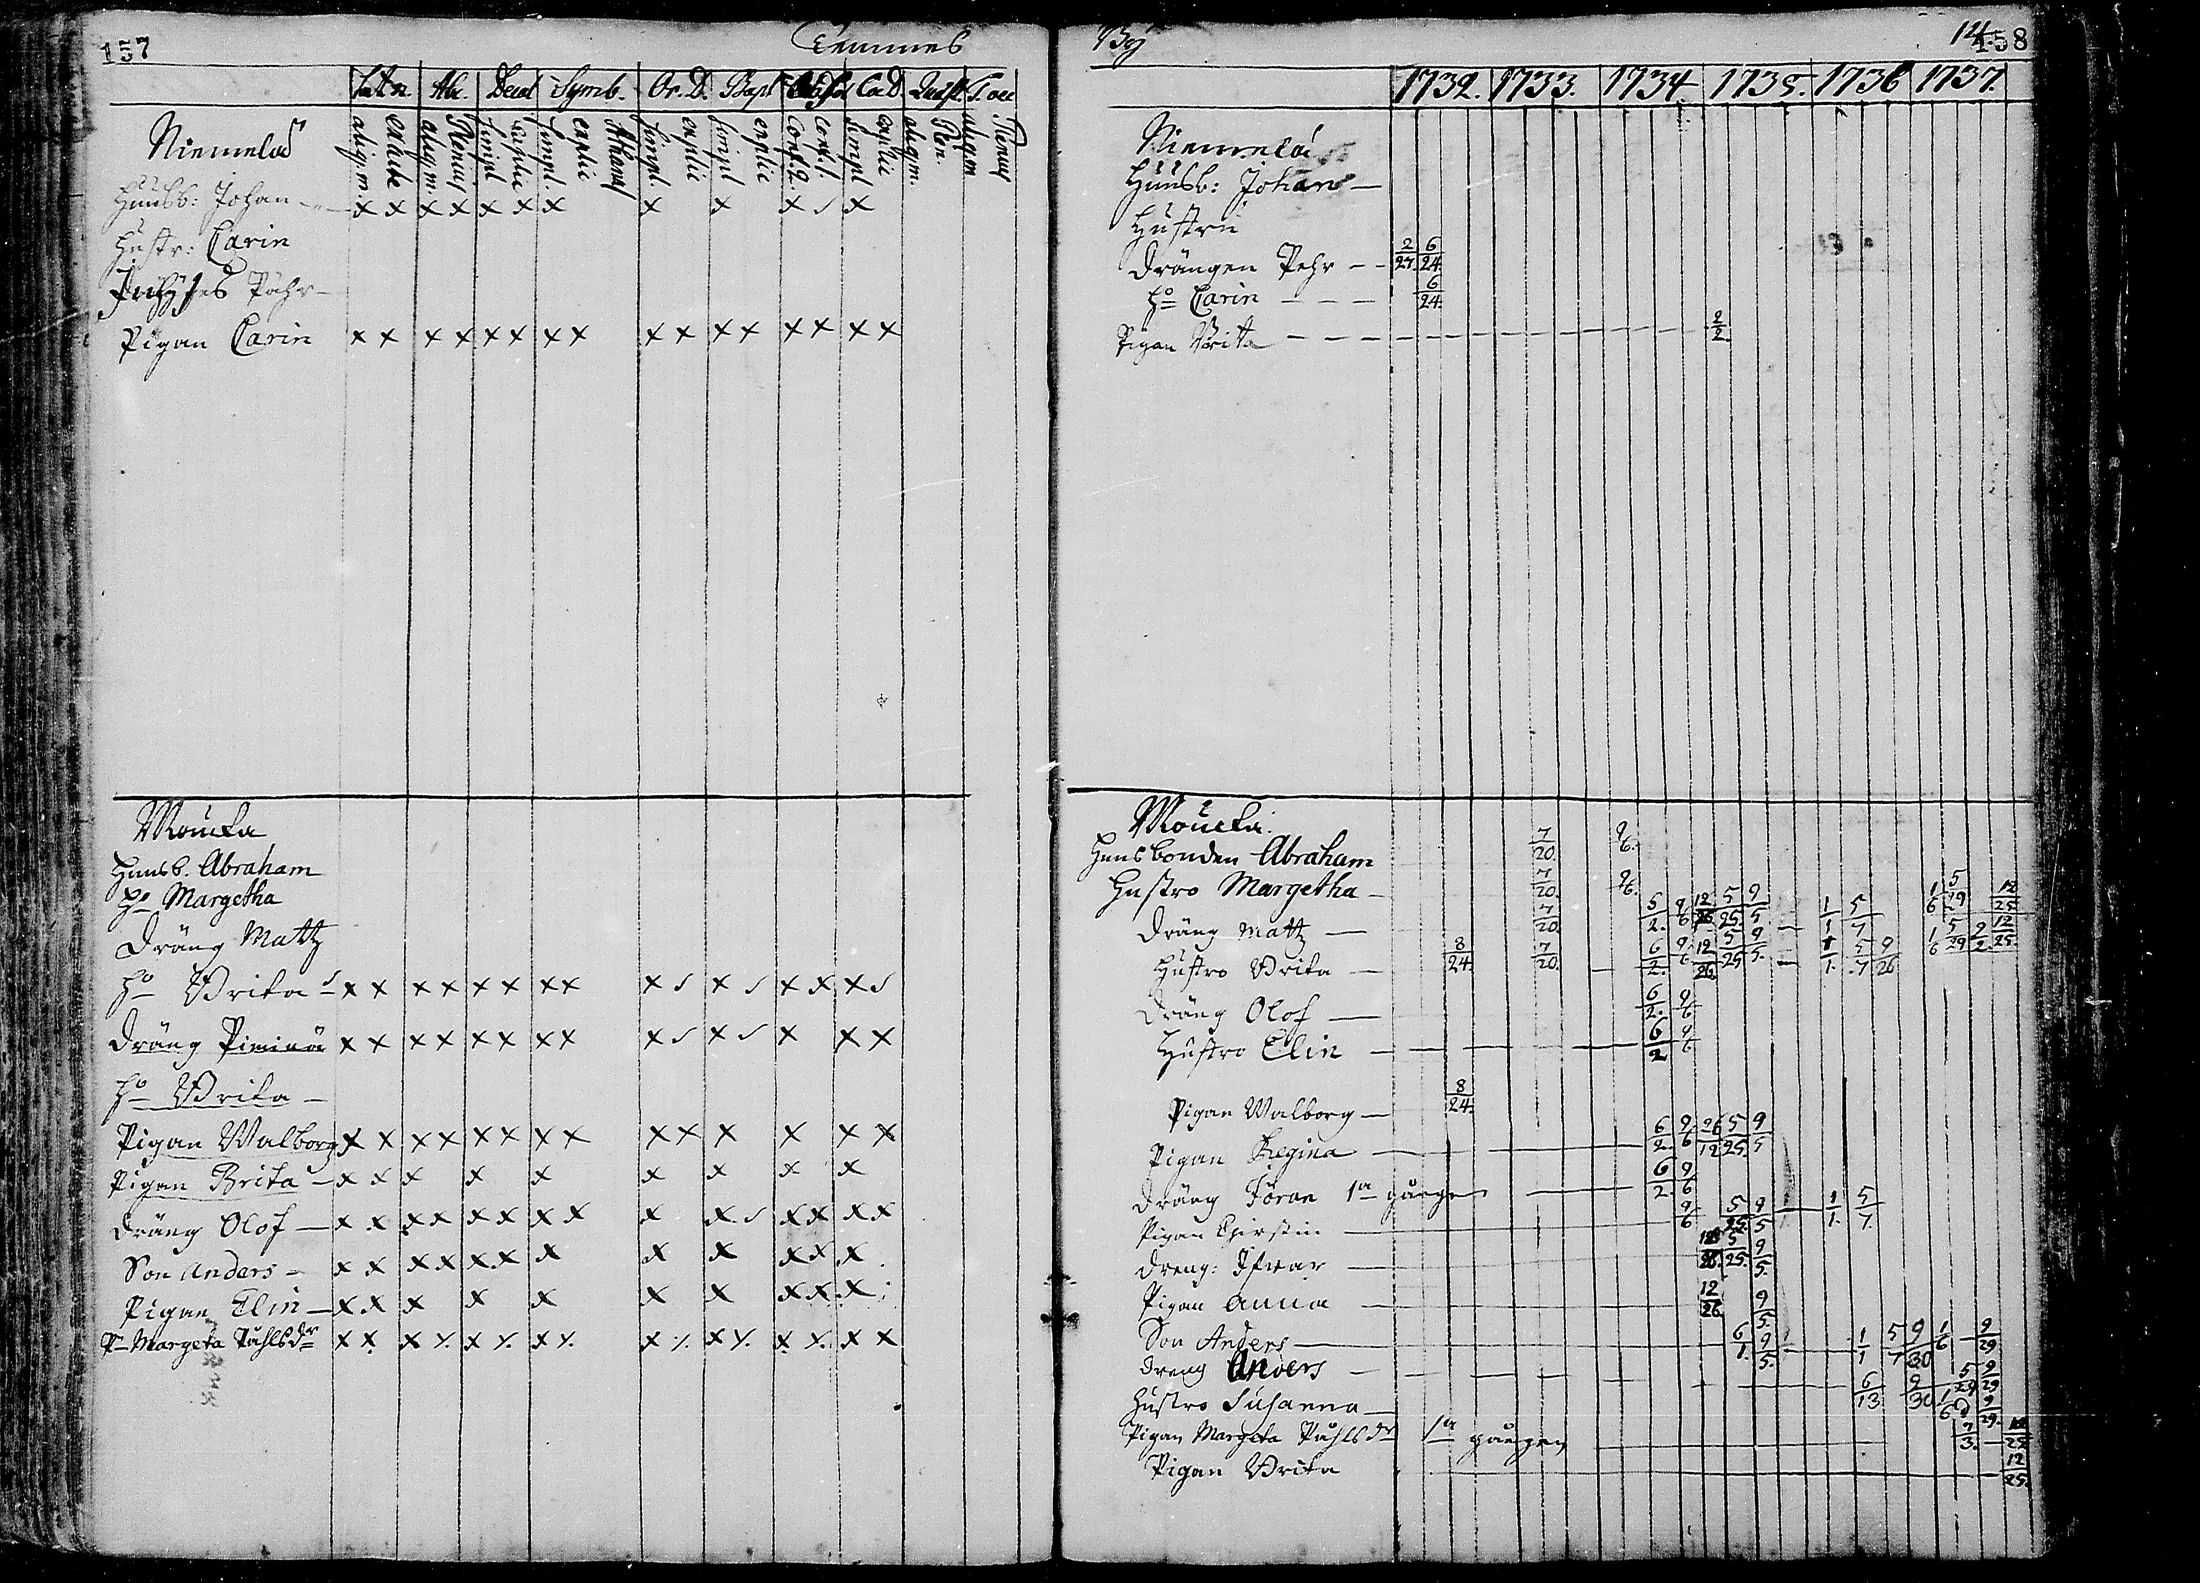 157 Temmes
Lutn. Abc. Decal Symb. Or. D. Bapt Cæ D. Quæst.
aliqm. explic simpl. explic Athanas simpl. explic simpl explic conf. 2. conf. 1. simpl explic aliqm. Plen. aliqm Plenius
Niemelä
Huusb: Johan x x x x x x x x x x x
Hustr: Carin
Påhr
Pigan Carin x x x x x x x x x x x x x x x x
Moucka
Huusb. Abraham
Ho Margetha
Dräng Mattz
Ho Brita x x x x x x x x x x x x x
Dräng x x x x x x x x x x x x x
Ho Brita
Pigan Walborg x x x x x x x x x x x x x x
Pigan Brita x x x x x x x x x
Dräng Olof x x x x x x x x x x x x x x
Son Anders x x x x x x x x x x x x
Pigan Elin x x x x x x x x x x
Pn Margeta Påhlsdr x x x x x x x x x x
By 158
1732. 1733. 1734 1735. 1736 1737.
Niemelä
Huusb: Johan
Hustru
Drängen Pehr 2/27. 6/24
Ho Carin 6/24
Pigan Brita 2/2.
Moucka.
Huusbonden Abraham 7/20. 9/6.
Hustro Margetha 7/20. 9/6.
Dräng Mattz 7/20. 5/2. 9/6 12/26 5/25. 9/5 1/1 5/7 1/6 5/29 12/25
Hustro Brita 8/24. 7/20. 6/2. 9/6 12/26 5/25 9/5. 1/1. 5/7 9/26 1/6 5/29 2/2 12/25.
Dräng Olof 6/2. 9/6
Hustro Elin 6/2 9/6
Pigan Walborg 8/24.
Pigan Regina 6/2. 9/6 26/12 5/25. 9/5
Dräng Jöran 1a gången 6/2. 9/6
Pigan Chirstin 9/6 5/25. 9/5 1/1. 5/7.
Dreng: Ifvar 12/26. 5/25. 9/5.
Pigan Anna 12/26 9/5.
Son Anders 6/1. 9/5. 1/1 5/7 9/30 1/6 9/29
Dreng Anders 6/13 9/30 5/29 9/29
Hustro Susanna 1/6 9/29.
Pigan Margeta Påhlsdr 1a gången 7/3. 12/25
Pigan Brita 12/25.